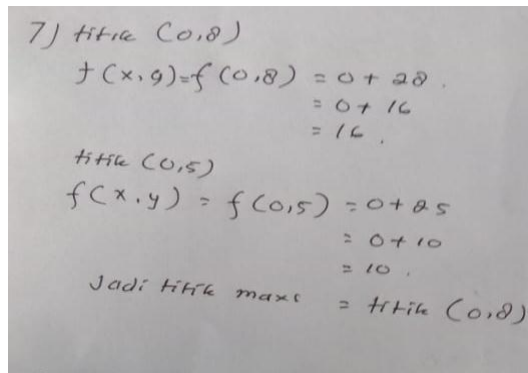 7) titik (0,8)
f(x,y)=f(0,8) = 0 + 28.
= 0 + 16
= 16.
titik (0,5)
f(x,y) = f(0,5) = 0 + 25
= 0 + 10
= 10.
Jadi titik maxs = titik (0,8)